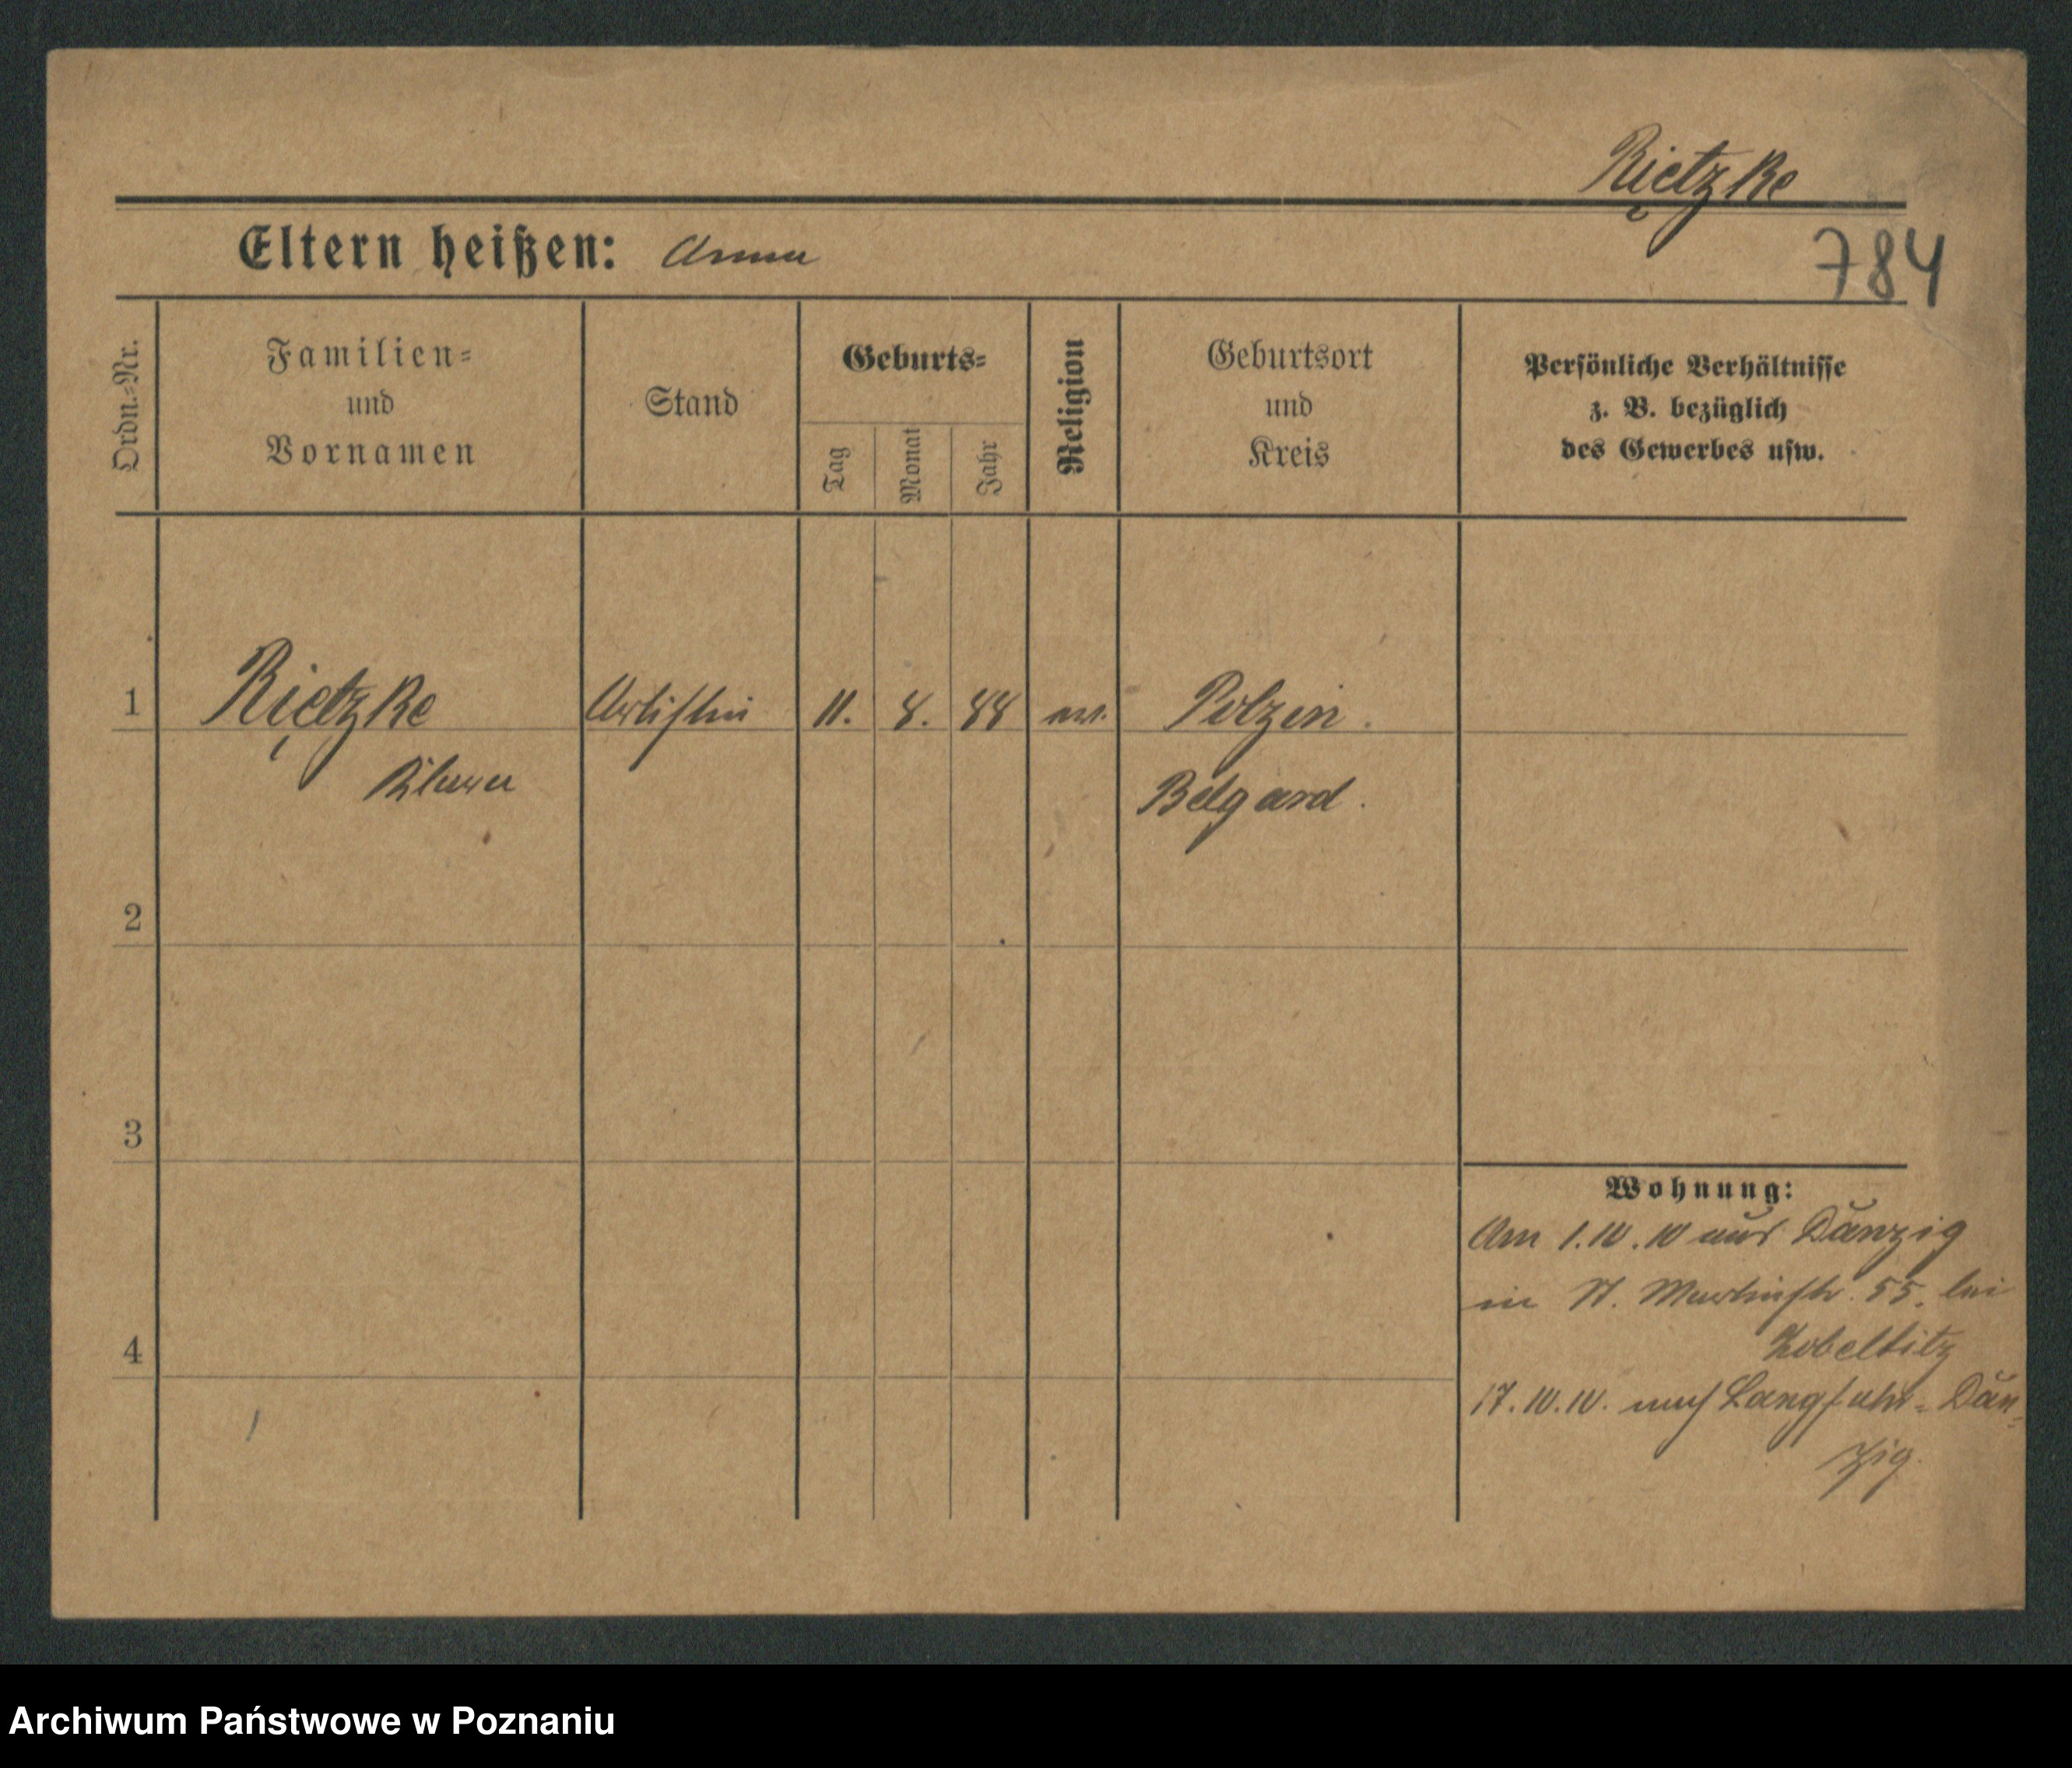 Rietzke
784
Eltern heißen: Anna
Ordn.=Nr.
Familien=
und
Vornamen
Stand
Geburts=
Tag
Monat
Jahr
Religion
Geburtsort
und
Kreis
Persönliche Verhältnisse
z. B. bezüglich
des Gewerbes usw.
1
Rietzke
Artistin
11. 8. 88
ev.
Polzin.
Klara
Belgard.
2
3
4
Wohnung:
Am 1.10.10 aus Danzig
in St. Martinstr. 55. bei
Zobeltitz
17.10.10. nach Langfuhr-Dan-
zig.
Archiwum Państwowe w Poznaniu